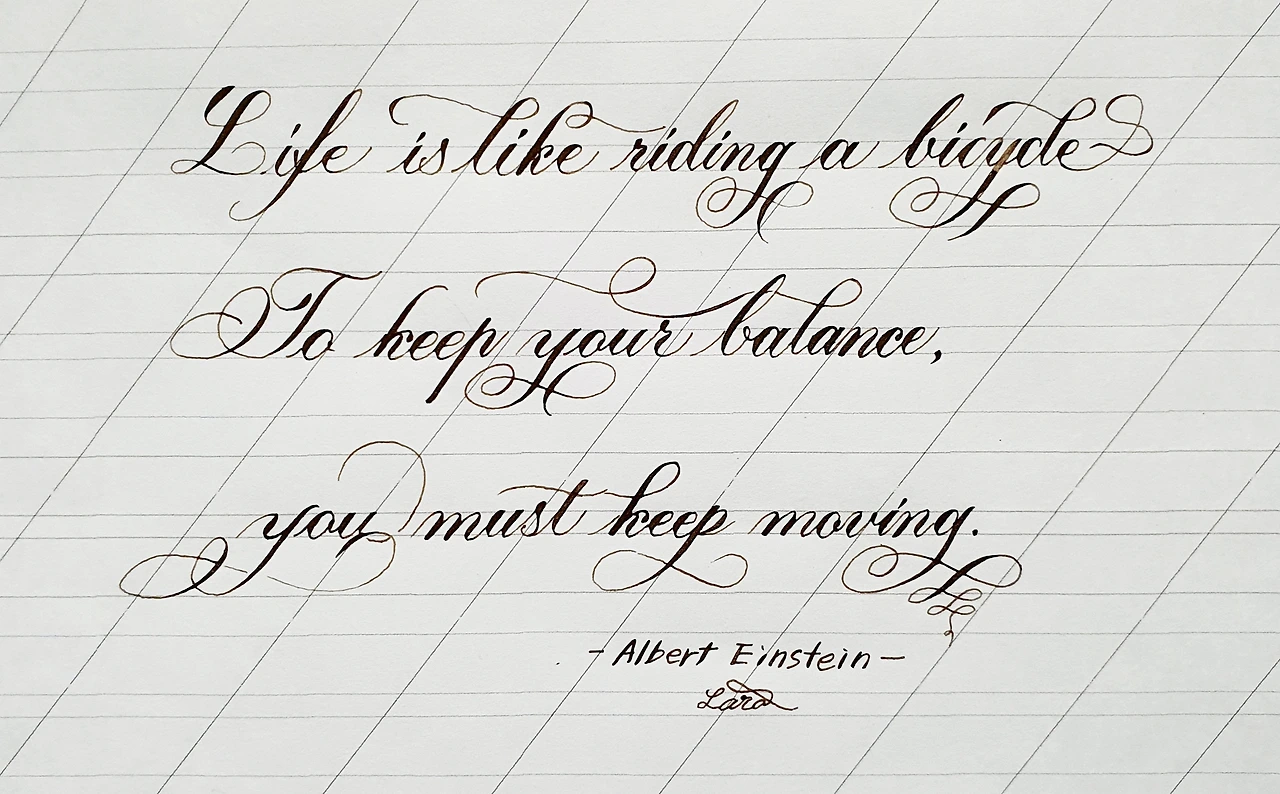 Life is like riding a bicycle
To keep your balance,
you must keep moving.
- Albert Einstein -
Lara